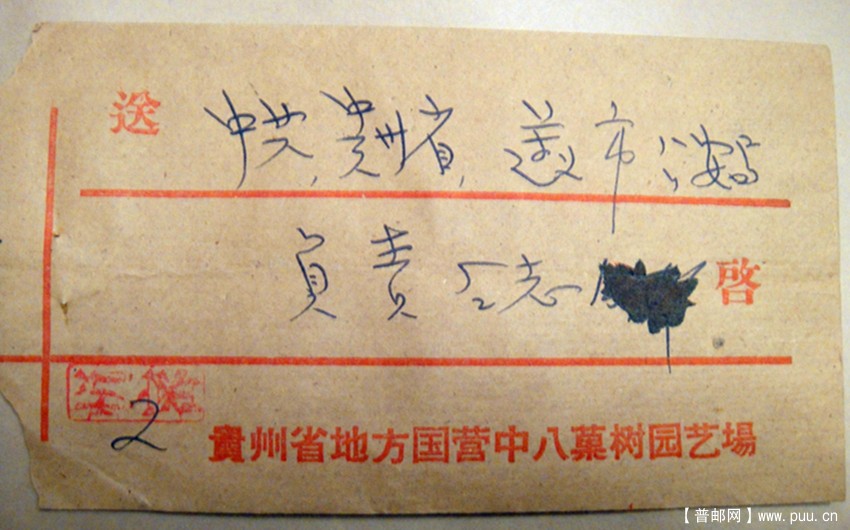 送 中共，贵州省，遵义市公安局
負責仝志 啓
2
貴州省地方国营中八菓树园艺場
【普邮网】www.puu.cn